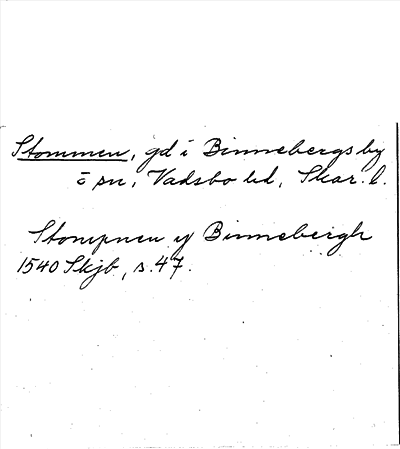 Stommen, gd i Binnebergs by
o sn, Vadsbo hd, Skar. l.
Stompnen y Binnebergh
1540 Skjb, s. 47.